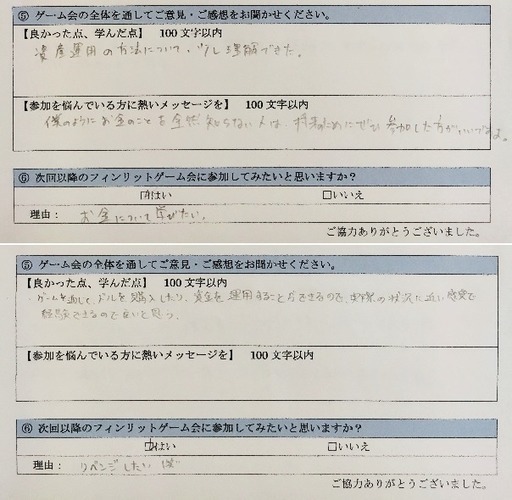 ⑤ ゲーム会の全体を通してご意見・ご感想をお聞かせください。
【良かった点、学んだ点】 100文字以内
資産運用の方法について、少し理解できた。
【参加を悩んでいる方に熱いメッセージを】 100文字以内
僕のようにお金のことを全然知らない人は、将来のためにぜひ参加した方がいいですよ。
⑥ 次回以降のフィンリットゲーム会に参加してみたいと思いますか？
はい □いいえ
理由： お金について学びたい。
ご協力ありがとうございました。
⑤ ゲーム会の全体を通してご意見・ご感想をお聞かせください。
【良かった点、学んだ点】 100文字以内
・ゲームを通して、ドルを購入したり、資金を運用することができるので、実際の状況に近い感覚で
経験できるので良いと思う。
【参加を悩んでいる方に熱いメッセージを】 100文字以内
⑥ 次回以降のフィンリットゲーム会に参加してみたいと思いますか？
はい □いいえ
理由： リベンジしたい
ご協力ありがとうございました。